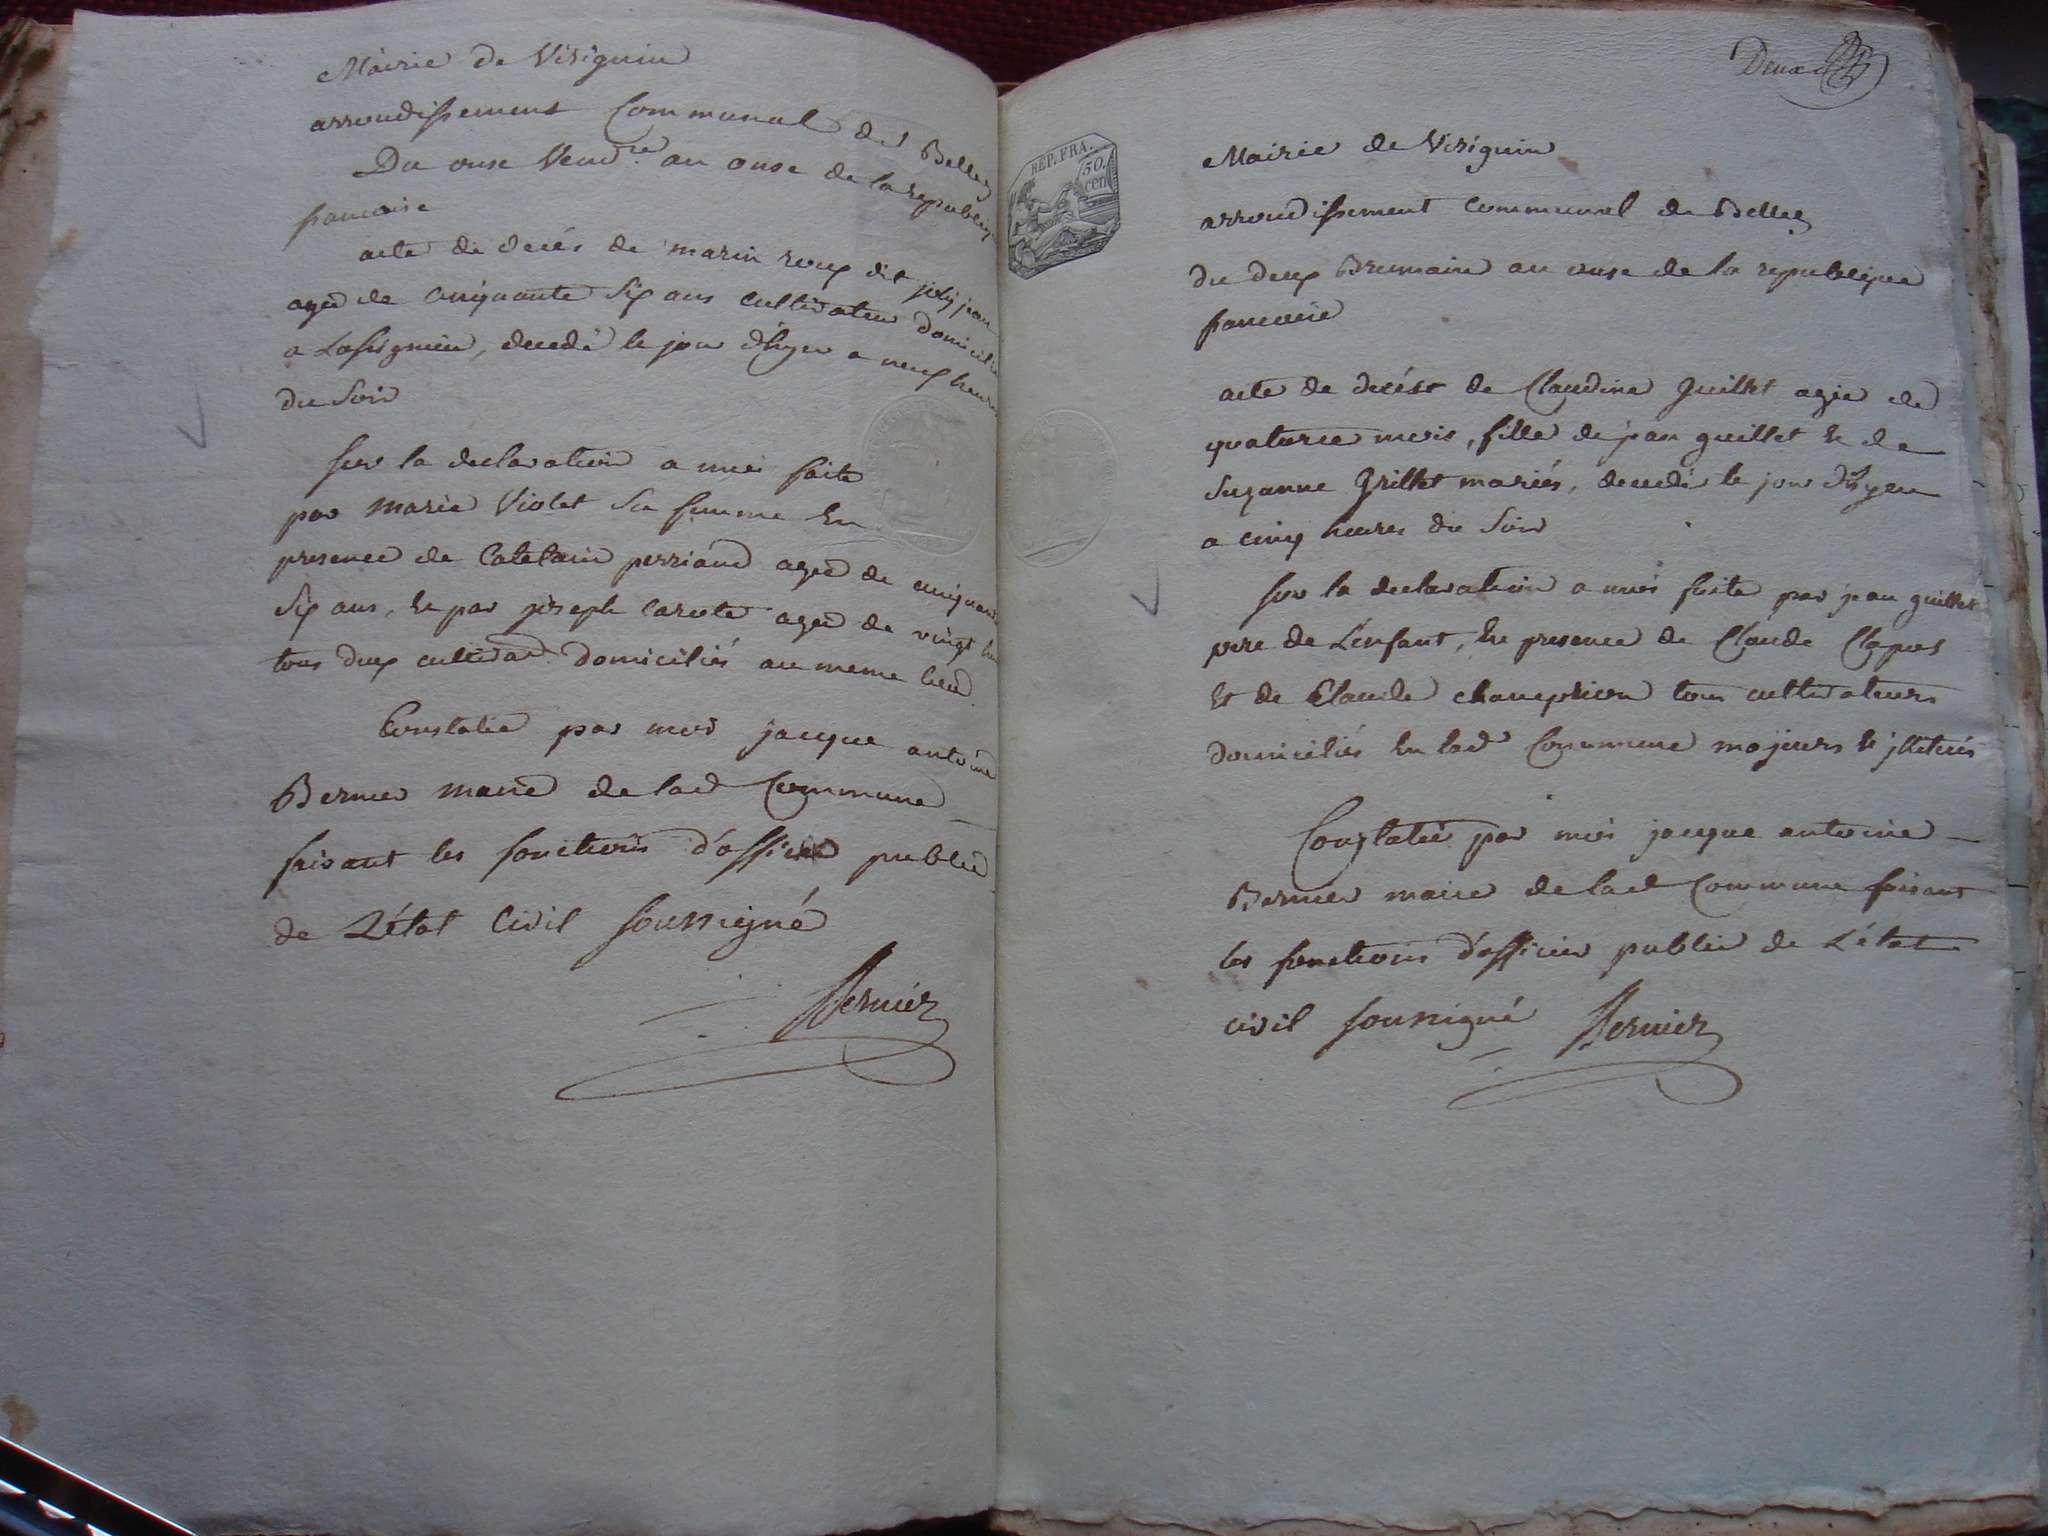 Mairie de Virignin
arrondissement Communal de Belley
Du onse Vend.re an onse de la republiq
francoise
acte de decés de marin roux dit joly jean
agé de cinquante six ans cultivateur domicilié
a Lassignieu, decedé le jour d'hyer a neuf heures
du Soir
sur la declaration a moi faite
par marie Violet sa femme En
presence de Catelain perriand agé de cinquante
six ans, Et par joseph Carote agé de vingt
tous deux cultivat. domiciliés au meme lieu
Constatée par moi jacque antoine
Bernier maire de lad Commune
faisant les fonctions d'officier public
de L'état Civil soussigné
Bernier
Deux
REP. FRA.
50.
cen
Mairie de Virignin
arrondissement communal de Belley
du deux Brumaire an onse de la republique
francoise
acte de decést de Claudine guillet agée de
quatorse mois, fille de jean guillet Et de
Suzanne Grillet mariés, decedée le jour d'hyer
a cinq heures du Soir
sur la declaration a moi faite par jean guillet
pere de L'enfant, En presence de Claude
Et de Claude champion tous cultivateurs
domiciliés En lad Commune majeurs Et jlliterés
Constatée par moi jacque antoine
Bernier maire de lad Commune faisant
les fonctions d'officier public de L'état
civil soussigné Bernier